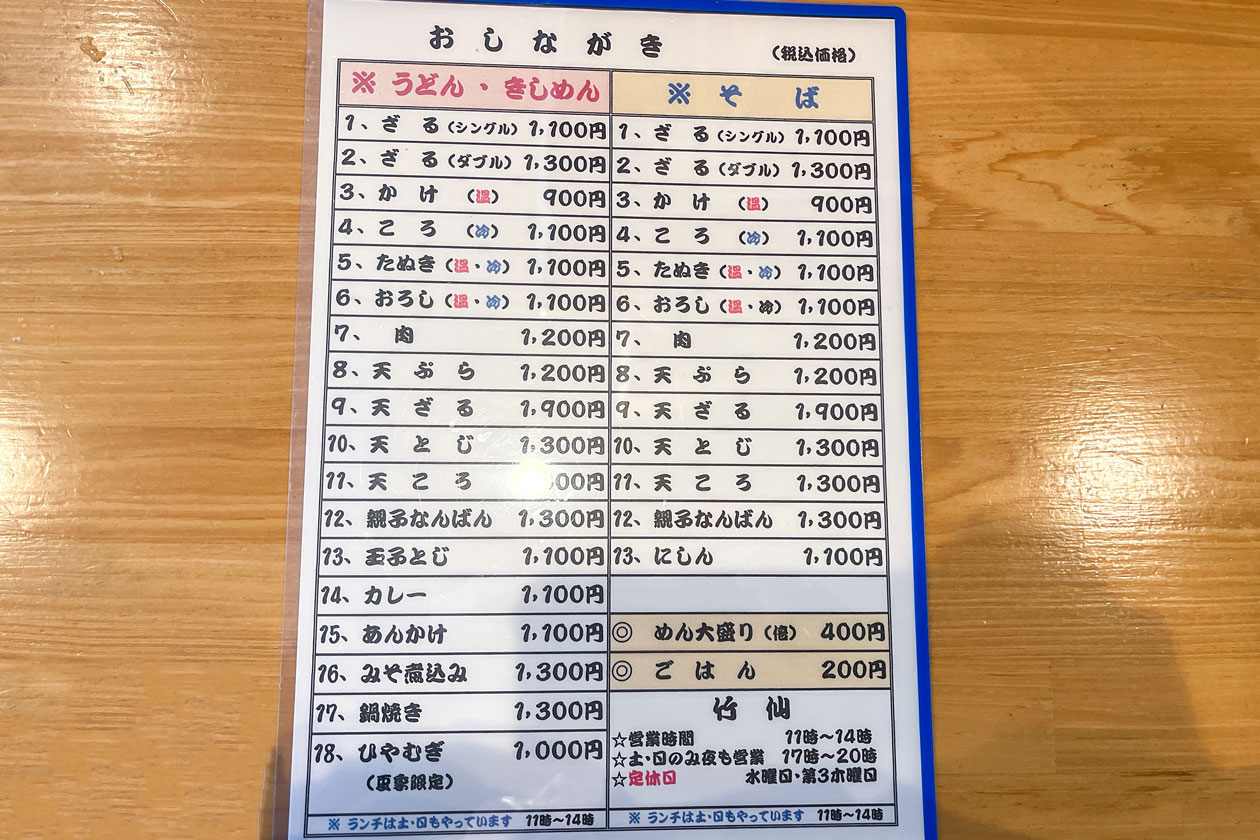 おしながき
（税込価格）
※ うどん・きしめん
1、ざる（シングル） 1,100円
2、ざる（ダブル） 1,300円
3、かけ（温） 900円
4、ころ（冷） 1,100円
5、たぬき（温・冷） 1,100円
6、おろし（温・冷） 1,100円
7、肉 1,200円
8、天ぷら 1,200円
9、天ざる 1,900円
10、天とじ 1,300円
11、天ころ 00円
12、親子なんばん 1,300円
13、玉子とじ 1,100円
14、カレー 1,100円
15、あんかけ 1,100円
16、みそ煮込み 1,300円
17、鍋焼き 1,300円
18、ひやむぎ 1,000円
（夏季限定）
※ ランチは土・日もやっています 11時～14時
※ そば
1、ざる（シングル） 1,100円
2、ざる（ダブル） 1,300円
3、かけ（温） 900円
4、ころ（冷） 1,100円
5、たぬき（温・冷） 1,100円
6、おろし（温・冷） 1,100円
7、肉 1,200円
8、天ぷら 1,200円
9、天ざる 1,900円
10、天とじ 1,300円
11、天ころ 1,300円
12、親子なんばん 1,300円
13、にしん 1,100円
◎ めん大盛り（倍） 400円
◎ ごはん 200円
竹仙
☆営業時間 11時～14時
☆土・日のみ夜も営業 17時～20時
☆定休日 水曜日・第3木曜日
※ ランチは土・日もやっています 11時～14時